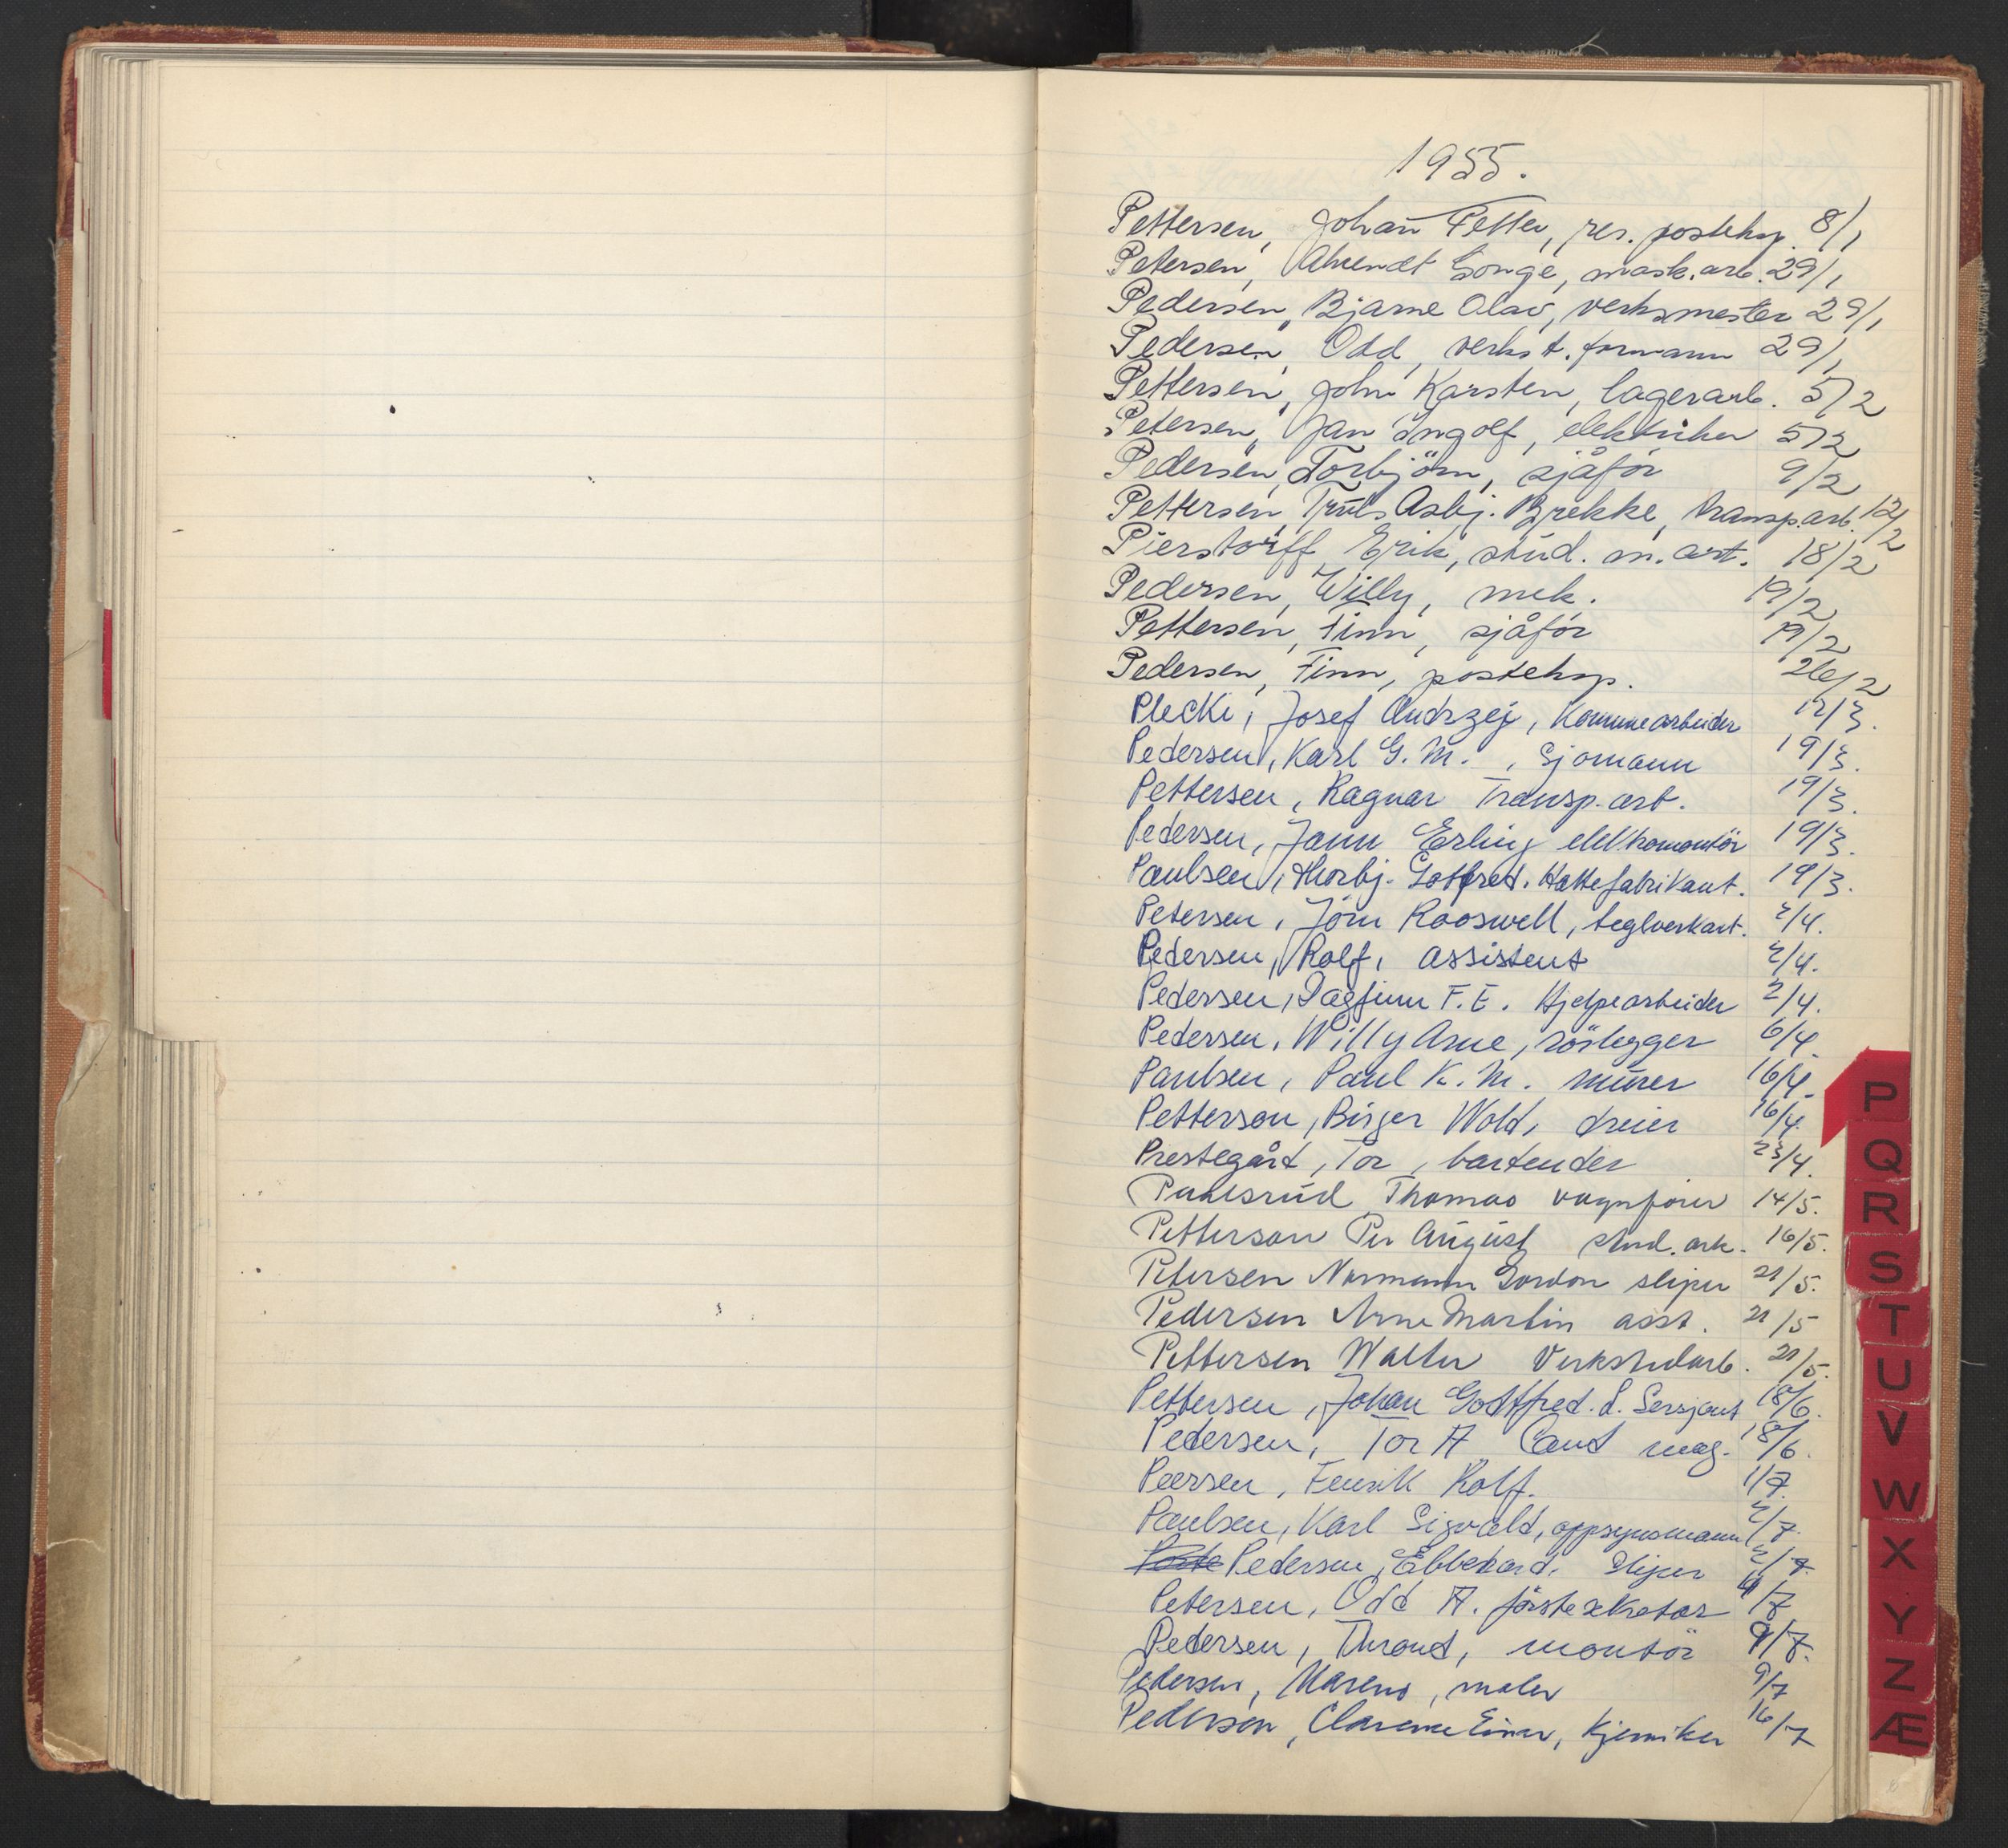 1955.
Pettersen, Johan Petter, res. posteksp. 8/1
Petersen, Ahrendt Songe, mask. arb. 29/1
Pedersen, Bjarne Olav, verksmester 29/1
Pedersen, Odd, verkst. formann 29/1
Pettersen, John Karsten, lagerarb. 5/2
Petersen, Jan Ingolf, elektriker 5/2
Pedersen, Torbjörn, sjåför 9/2
Pettersen, Truls Asbj. Brekke, transp.arb. 12/2
Pierstorff, Erik, stud. m. art. 18/2
Pedersen, Willy, mek. 19/2
Pettersen, Finn, sjåför 19/2
Pedersen, Finn, posteksp. 26/2
Plecki, Josef Andrzej, Kommearbeider 12/3.
Pedersen, Karl G. M., Sjomann 19/3.
Pettersen, Ragnar Transp. arb. 19/3.
Pedersen, Jann Erling elektromontör 19/3.
Paulsen, Thorbj. Gotfred. Hattefabrikant. 19/3.
Petersen, Jörn Rooswell, teglverkarb. 2/4.
Pedersen, Rolf, assistent 2/4.
Pedersen, Dagfinn F. E. Hjelpearbeider 2/4.
Pedersen, Willy Arne, rörlegger 6/4.
Paulsen, Paul K. M. murer 16/4.
Petterson, Birger Wold, dreier 16/4.
Prestegård, Tor, bartender 23/4.
Thomas vognforer 14/5.
Petterson Per August stud. ark. 16/5.
Petersen Normann Gordon sliper 21/5.
Pedersen Arne Martin asst. 21/5
Pettersen Walter Verkstedarb. 21/5.
Pettersen, Johan Gottfred. S. Sersjant 18/6.
Pedersen, Tor A Cand mag. 18/6.
Peersen, Rolf. 1/7.
Paulsen, Karl Sigvald, oppsynsmann 2/7.
Pedersen, Ebbehard. Sliper 2/7.
Petersen, Odd A. förstesekretær /7
Pedersen, Thrond, montör 9/7.
Pedersen, Mareno, maler 9/7
Pedersen, Clarence Einar, kjemiker 16/7
P
Q
R
S
T
U
V
W
X
Y
Z
Æ